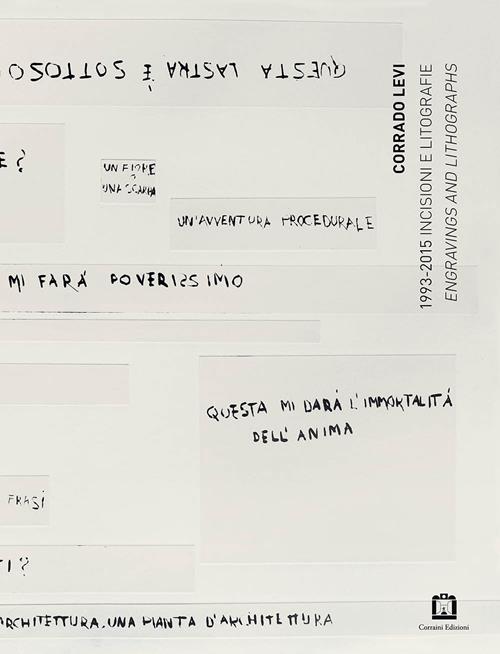 QUESTA LASTRA È SOTTOSO
E?
UN FIORE
O
UNA SCARPA
UN'AVVENTURA PROCEDURALE
MI FARÁ POVERISSIMO
QUESTA MI DARÁ L'IMMORTALITÁ
DELL'ANIMA
FRASI
I?
ARCHITETTURA. UNA PIANTA D'ARCHITETTURA
CORRADO LEVI
1993-2015 INCISIONI E LITOGRAFIE
ENGRAVINGS AND LITHOGRAPHS
Corraini Edizioni